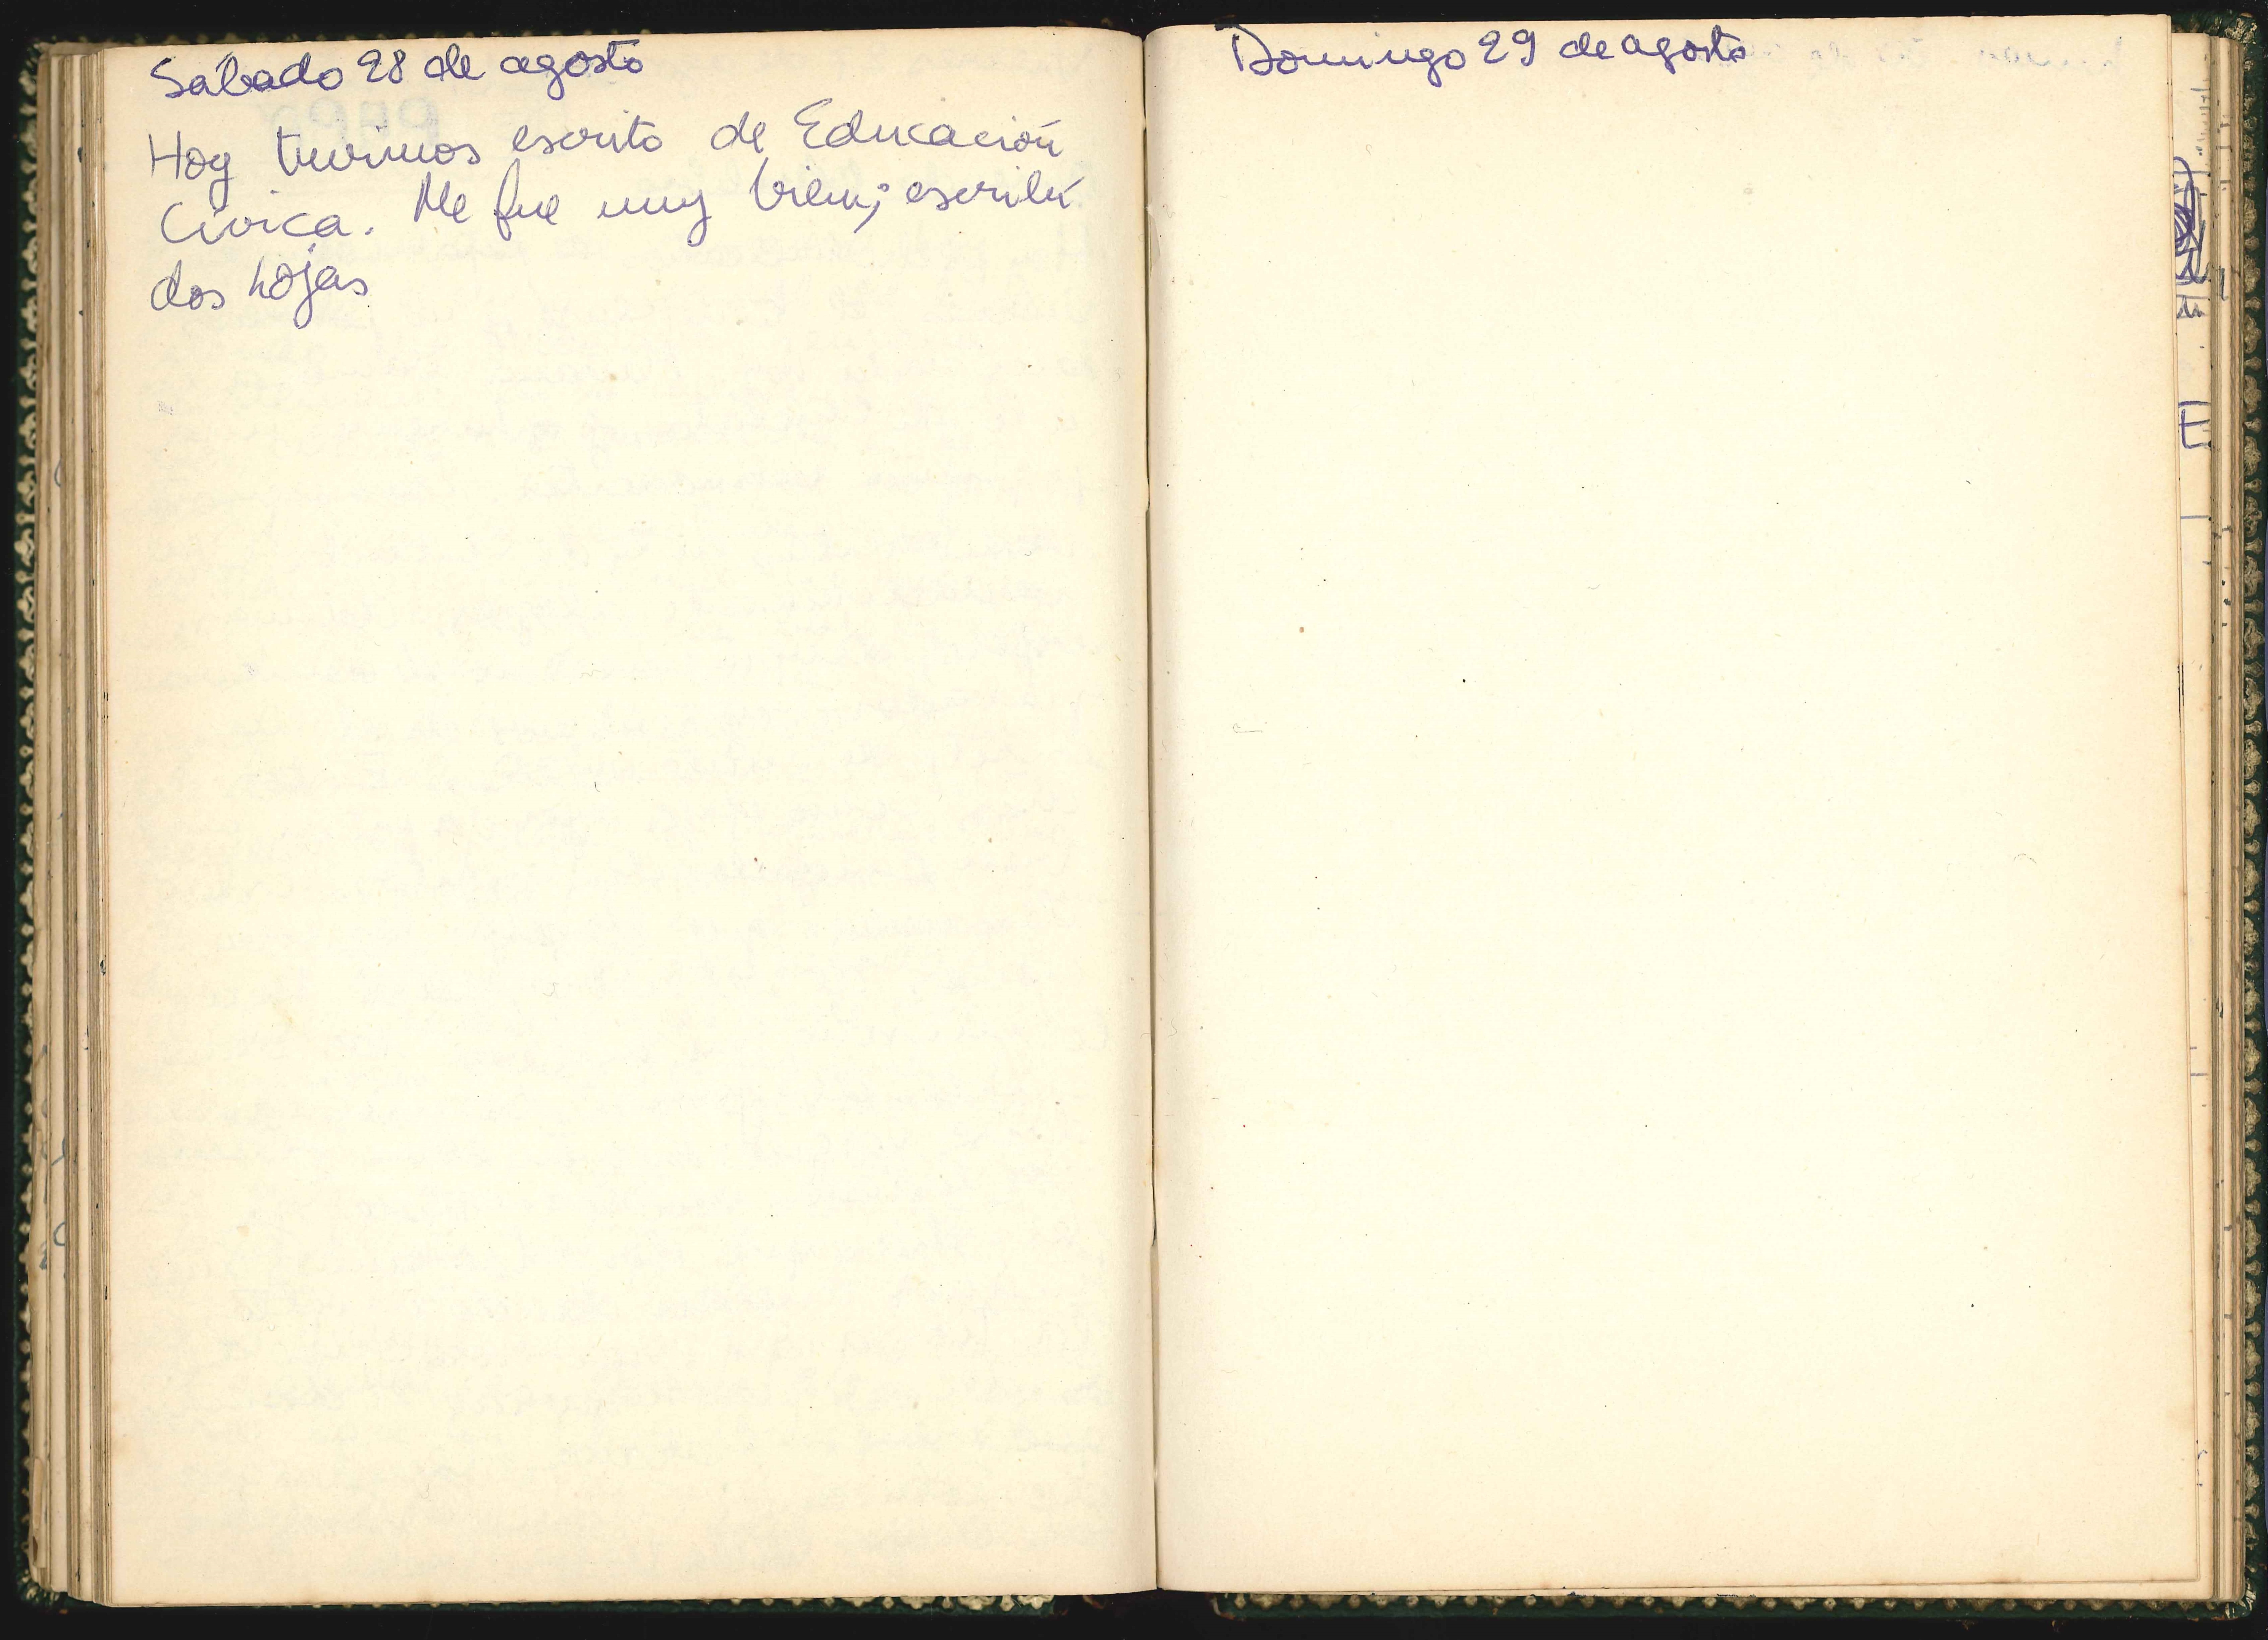 Sábado 28 de agosto
Hoy tuvimos escrito de Educación
Cívica. Me fue muy bien; escribí
dos hojas
Domingo 29 de agosto